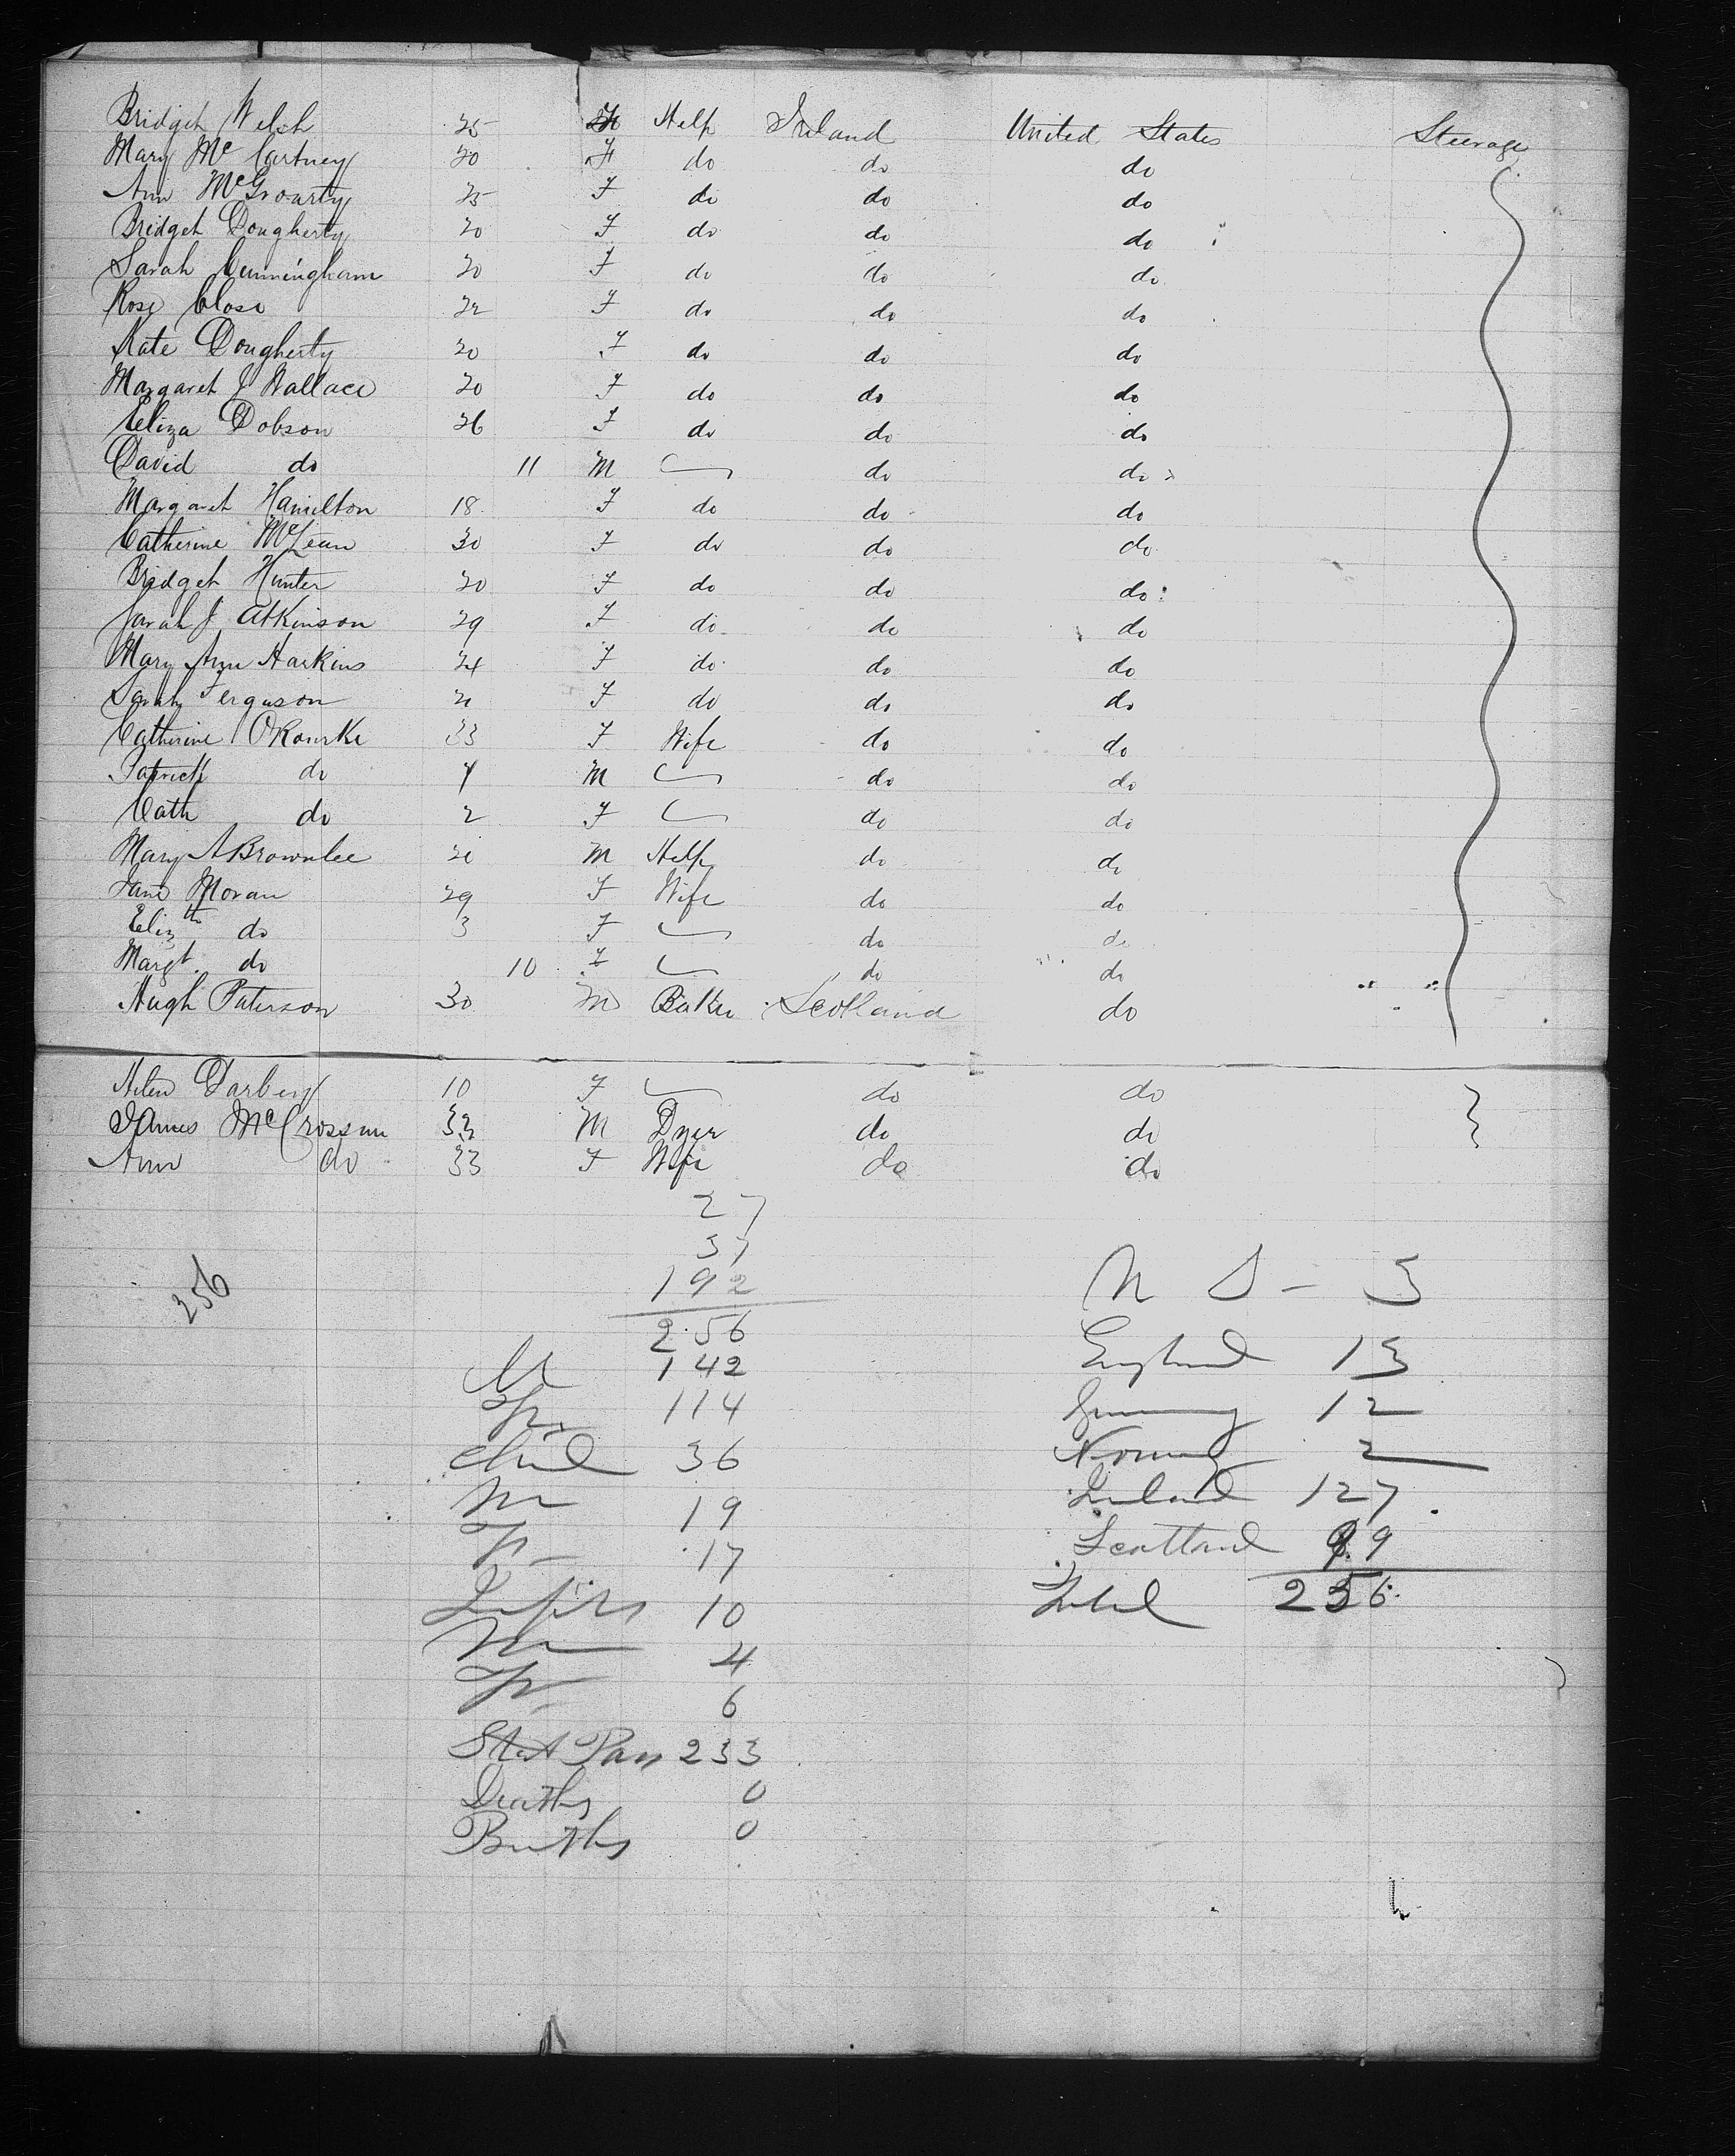 Bridget Welsh 25 F Help Ireland United States Steerage
Mary McCartney 20 F do do do
Ann McGroarty 25 F do do do
Bridget Dougherty 20 F do do do
Sarah Cunningham 20 F do do do
Rose Close 22 F do do do
Kate Dougherty 20 F do do do
Margaret J Wallace 20 F do do do
Eliza Dobson 26 F do do do
David do 11 M do do
Margaret Hamilton 18 F do do do
Catherine McLean 30 F do do do
Bridget Hunter 20 F do do do
Sarah J Atkinson 29 F do do do
Mary Ann Harkins 24 F do do do
Sarah Ferguson F do do do
Catherine ORourke 33 F Wife do do
Patrick do M do do
Cath do 2 F do do
Mary A Brownlee M Help do do
Jane Moran 29 F Wife do do
Elizth do 3 F do do
Margt. do 10 F do do
Hugh Paterson 30 M Baker Scotland do
Helen Darbey 10 F do do
James McCrossan 32 M Dyer do do
Ann do 33 F Wife do do
27
37
192
256
256
M 142
F 114
Child 36
M 19
F 17
Infts 10
M 4
F 6
Stat Pass 233
Deaths 0
Births 0
U S - 3
England 13
Germany 12
Norway 2
Ireland 127
Scotland 99
Total 256